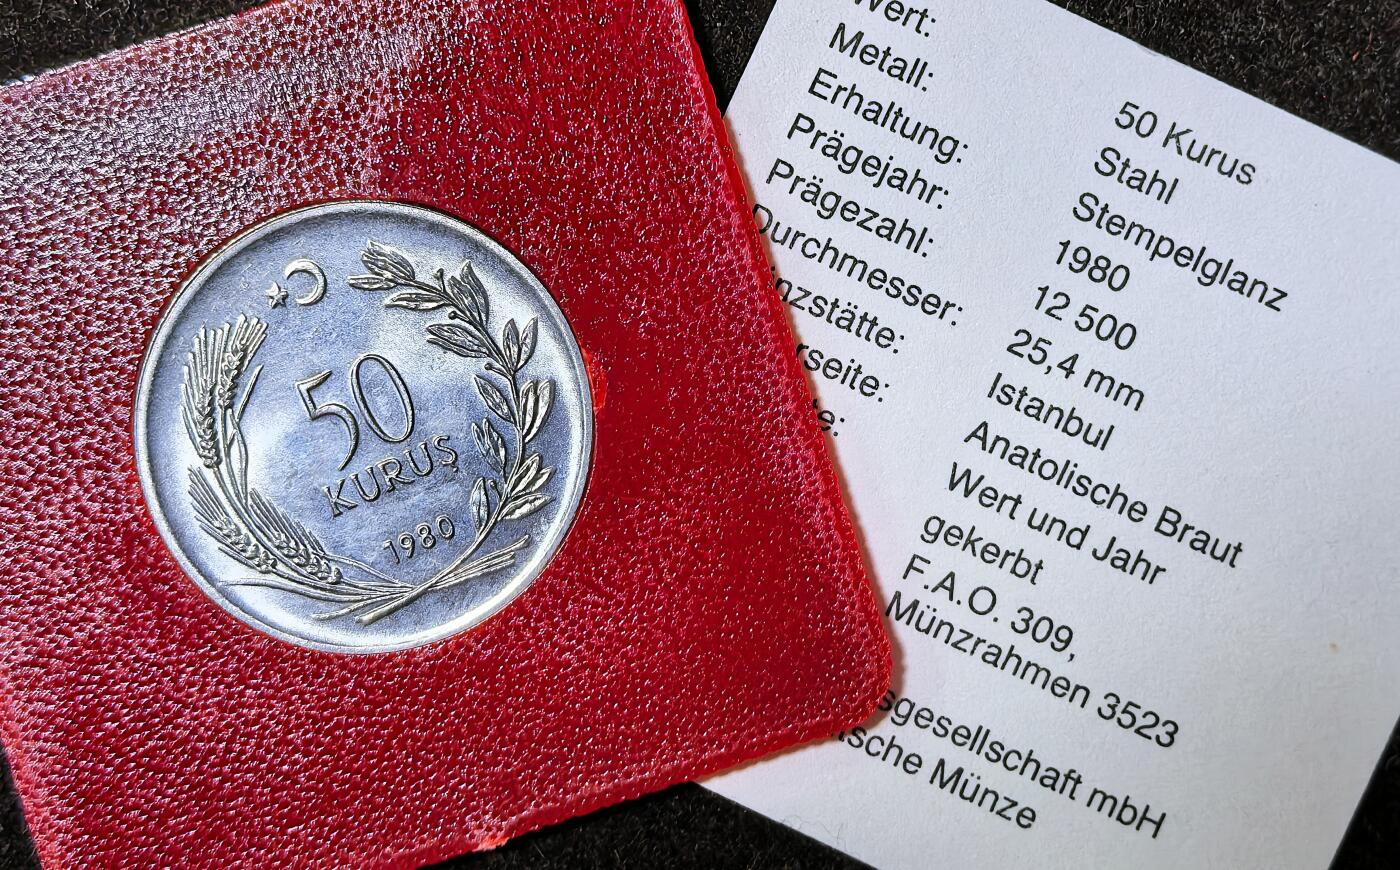 50
KURUŞ
1980
Wert: 50 Kurus
Metall: Stahl
Erhaltung: Stempelglanz
Prägejahr: 1980
Prägezahl: 12 500
Durchmesser: 25,4 mm
nzstätte: Istanbul
rseite: Anatolische Braut
e: Wert und Jahr
gekerbt
F.A.O. 309,
Münzrahmen 3523
sgesellschaft mbH
tsche Münze